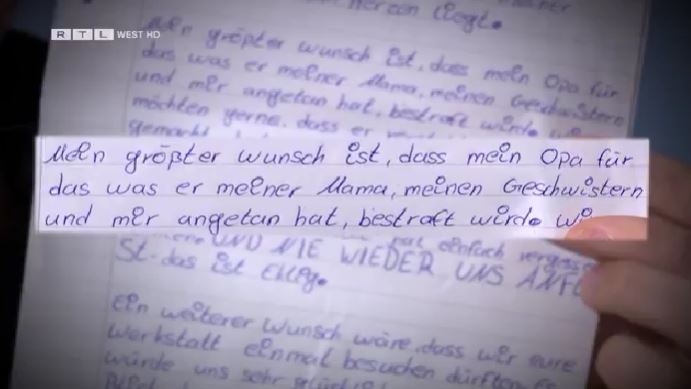 RTL WEST HD
liegt.
Mein größter wunsch ist, dass mein Opa für
das was er meiner Mama, meinen Geschwistern
und mir angetan hat, bestraft wirde wi
möchten gerne, dass er
gemacht
Mein größter wunsch ist, dass mein Opa für
das was er meiner Mama, meinen Geschwistern
und mir angetan hat, bestraft wirde wi
hat einfach vergesse
UND NIE WIEDER UNS ANF
St. das ist Eklig.
Ein weiterer Wunsch wäre, dass wir eure
Werkstatt einmal besuchen dürften
würde uns sehr